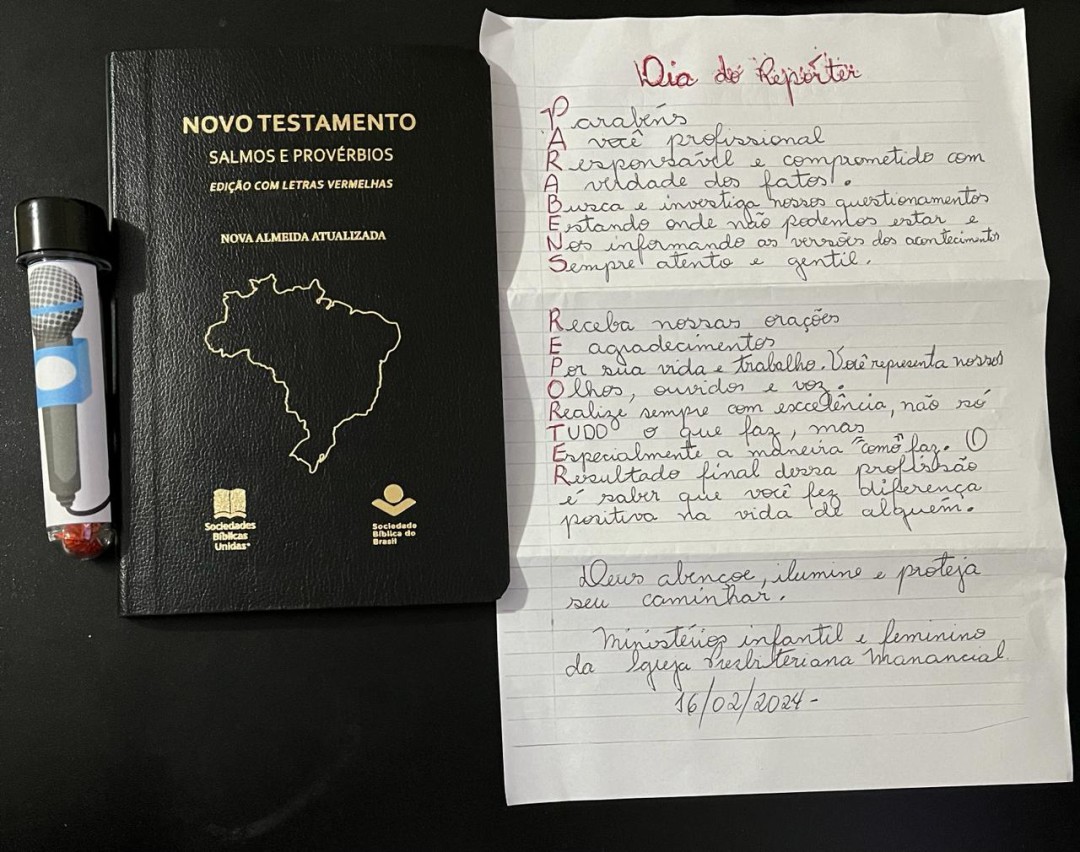 NOVO TESTAMENTO
SALMOS E PROVÉRBIOS
EDIÇÃO COM LETRAS VERMELHAS
NOVA ALMEIDA ATUALIZADA
Sociedades
Bíblicas
Unidas
Sociedade
Bíblica do
Brasil
Dia do Repórter
Parabéns
A você profissional
Responsável e comprometido com
A verdade dos fatos.
Busca e investiga nossos questionamentos
Estando onde não podemos estar e
Nos informando as versões dos acontecimentos
Sempre atento e gentil.
Receba nossas orações
E agradecimentos
Por sua vida e trabalho. Você representa nossos
Olhos, ouvidos e voz.
Realize sempre com excelência, não só
TUDO o que faz, mas
Especialmente a maneira "como" faz. O
Resultado final dessa profissão
é saber que você fez diferença
positiva na vida de alguém.
Deus abençoe, ilumine e proteja
seu caminhar.
Ministérios infantil e feminino
da Igreja Presbiteriana Manancial
16/02/2024-